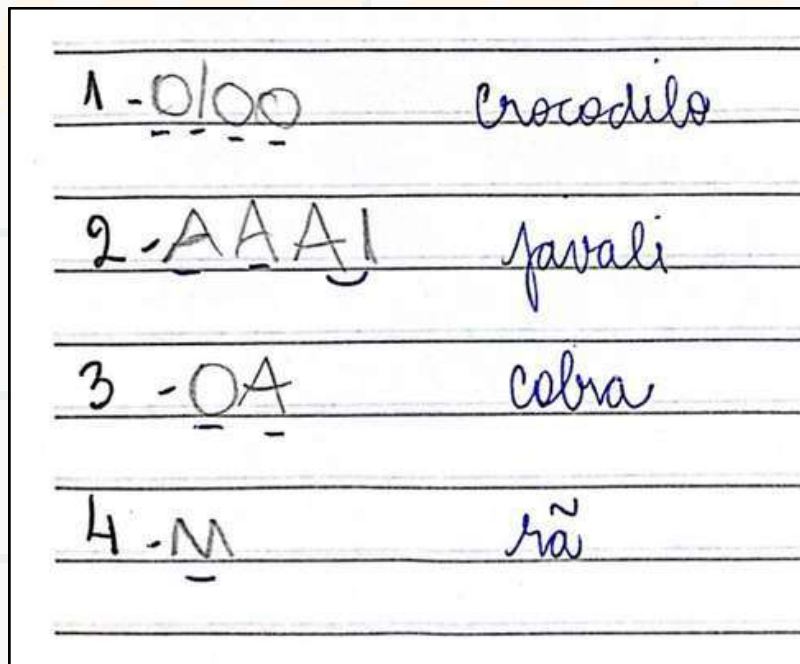 1 - OIOO crocodilo
2 - AAAI javali
3 - OA cobra
4 - M rã